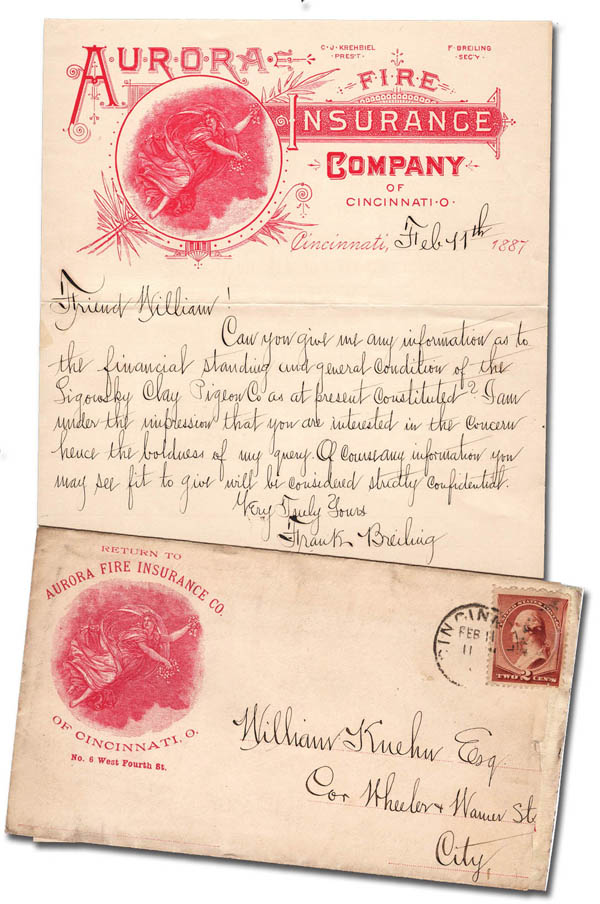 AURORA
C.J. KREHBIEL F. BREILING
PRES'T. SEC'Y.
FIRE
INSURANCE
COMPANY
OF
CINCINNATI·O·
Cincinnati, Feb 11th 1887
Friend William!
Can you give me any information as to
the financial standing and general Condition of the
Ligowsky Clay Pigeon Co as at present Constituted? I am
under the impression that you are interested in the Concern
hence the boldness of my query. Of Course any information you
may see fit to give will be considered strictly Confidential.
Very Truly Yours
Frank Breiling
RETURN TO
AURORA FIRE INSURANCE CO.
OF CINCINNATI, O.
No. 6 West Fourth St.
CINCINN
FEB 11
11
UNITED STATES POSTAGE
TWO 2 CENTS
William Kuehn Esq.
Cor Wheeler & Warner Sts
City